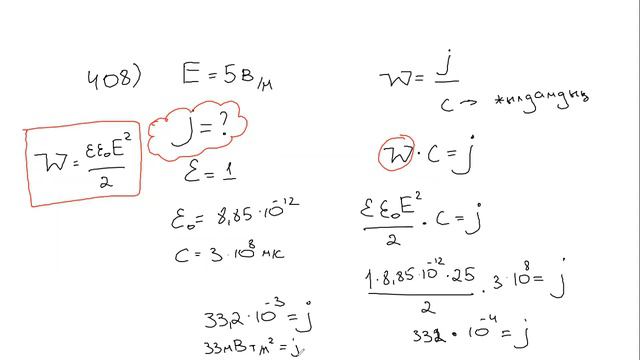 408) E = 5 В/м
j = ?
W = εε₀E²/2
ε = 1
ε₀ = 8,85 · 10⁻¹²
c = 3 · 10⁸ мк
33,2 · 10⁻³ = j
33мВт м² = j
W = j/c → жылдамдық
W · c = j
εε₀E²/2 · c = j
1 · 8,85 · 10⁻¹² · 25/2 · 3 · 10⁸ = j
332 · 10⁻⁴ = j